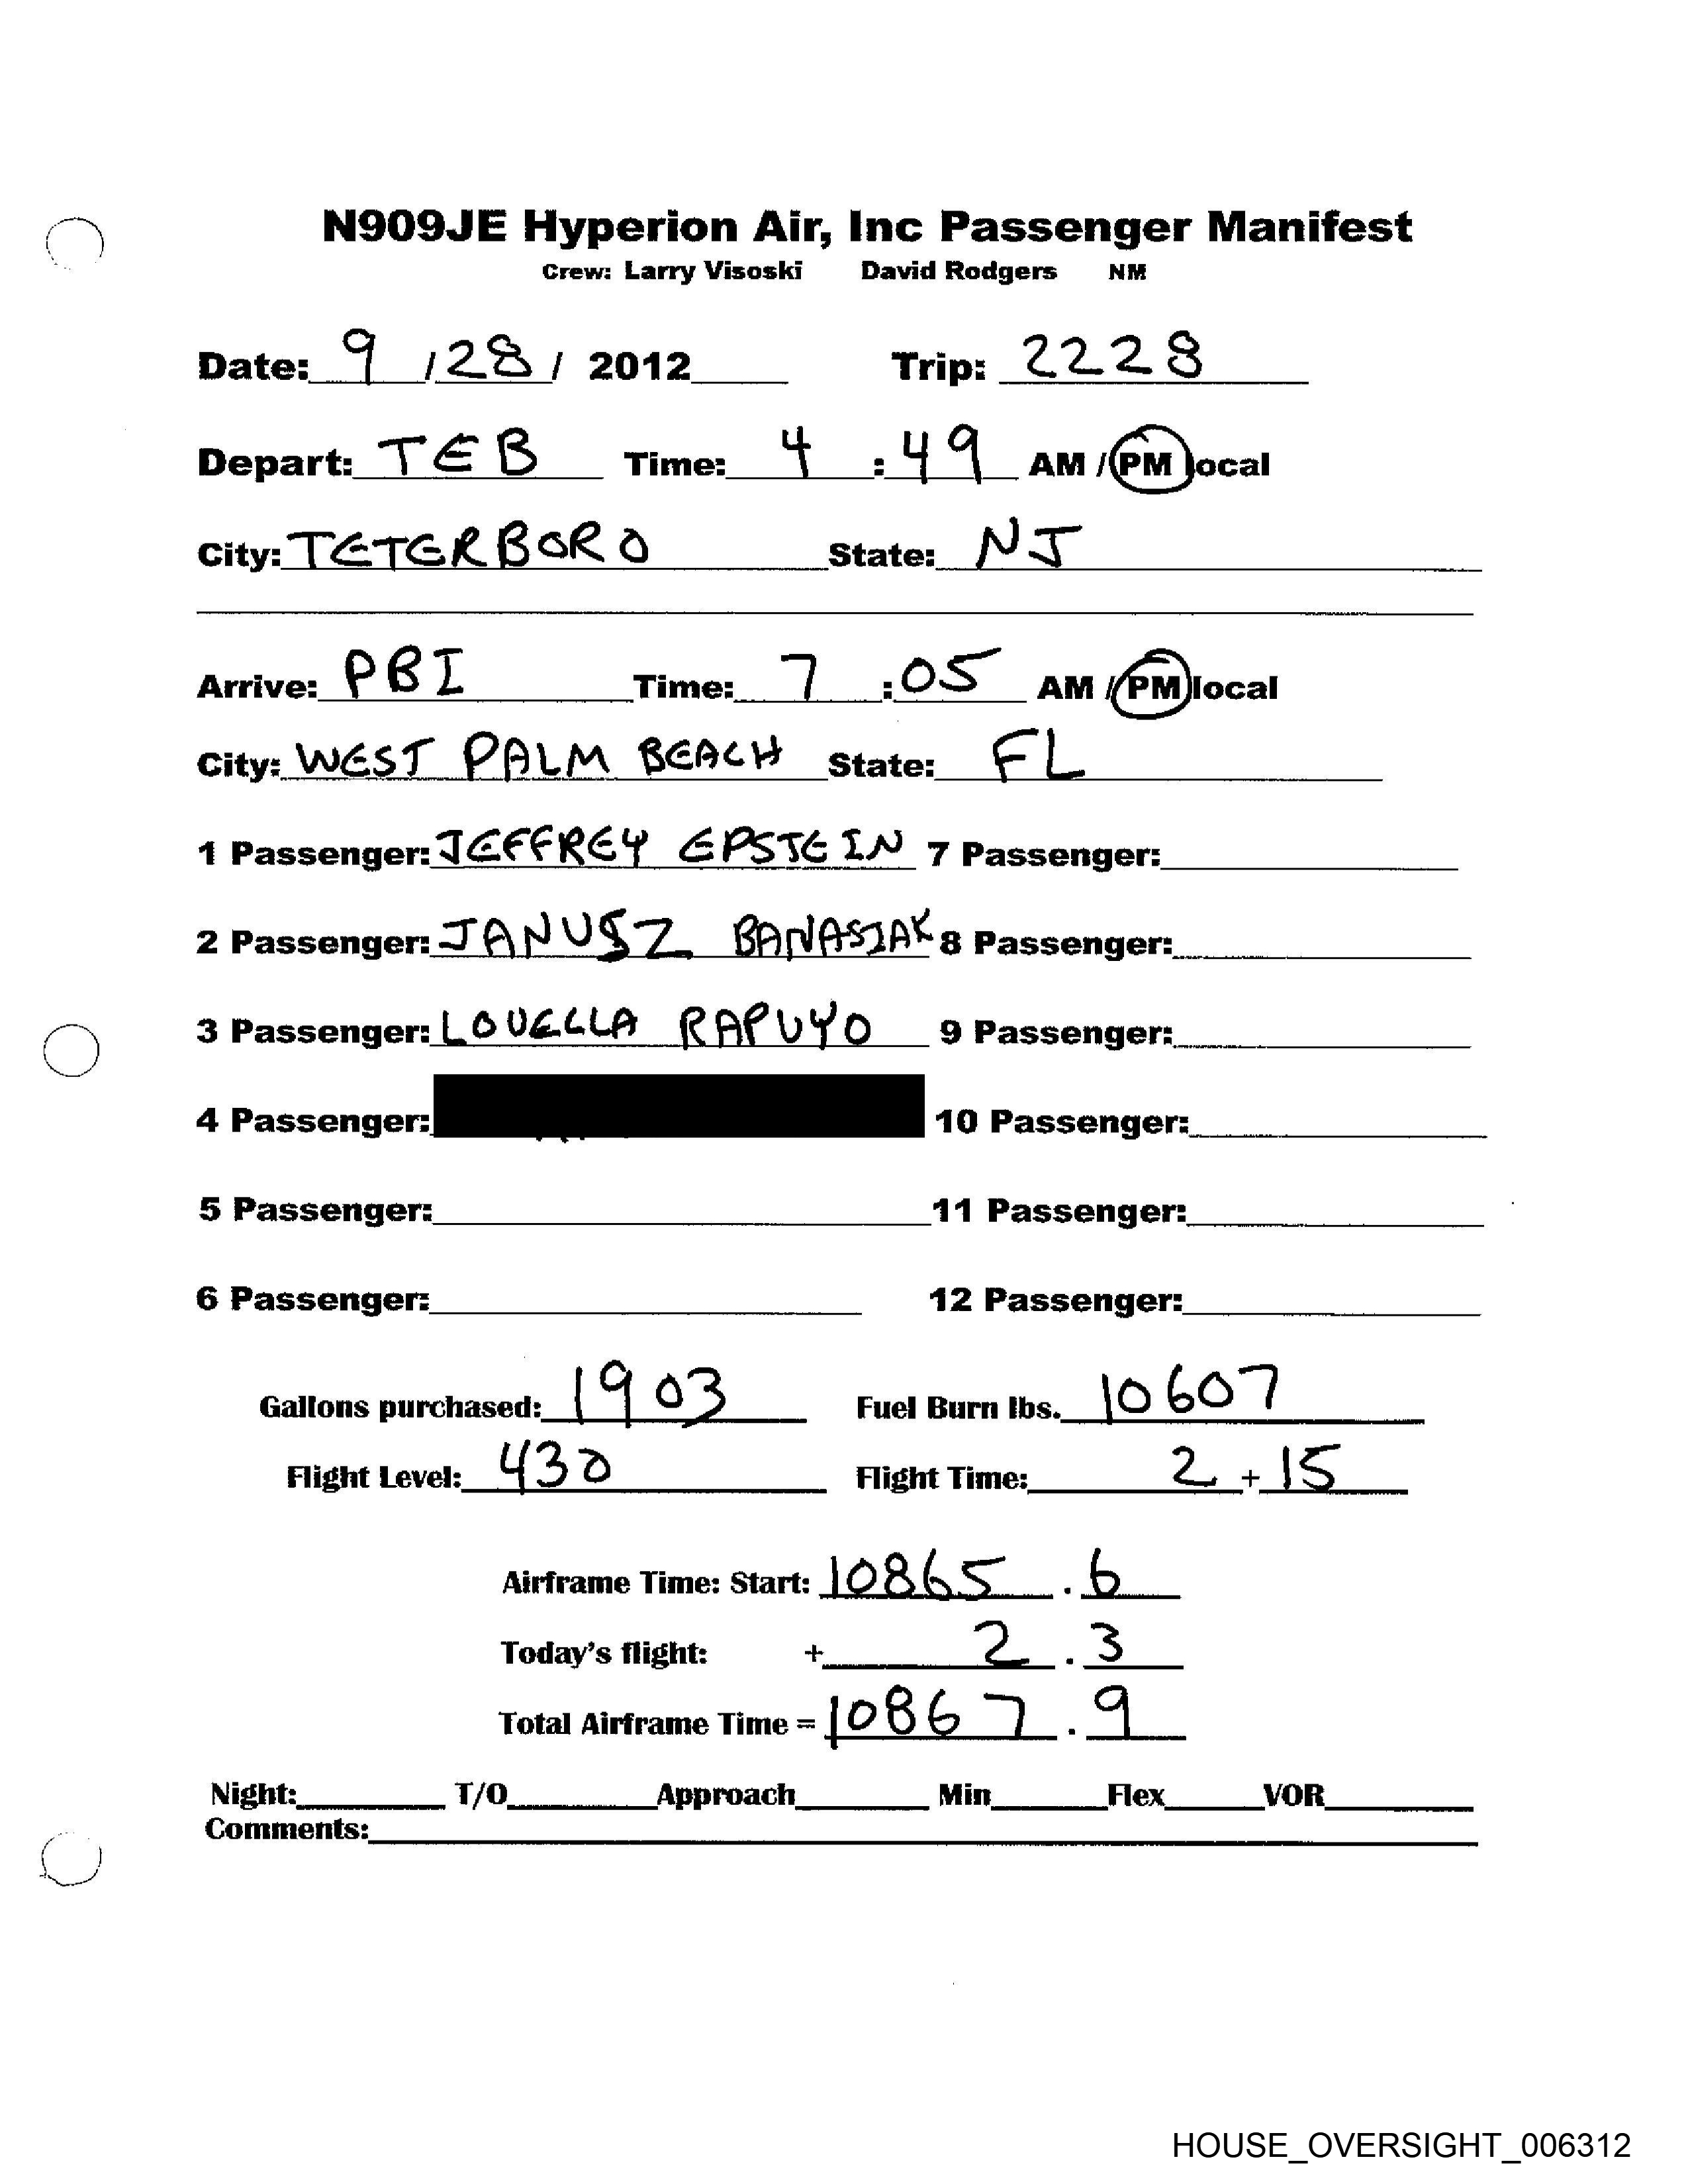 N909JE Hyperion Air, Inc Passenger Manifest
Crew: Larry Visoski David Rodgers NM
Date: 9 / 28 / 2012 Trip: 2228
Depart: TEB Time: 4 : 49 AM / PM local
City: TETERBORO State: NJ
Arrive: PBI Time: 7 : 05 AM / PM local
City: WEST PALM BEACH State: FL
1 Passenger: JEFFREY EPSTEIN 7 Passenger:
2 Passenger: JANUSZ BANASIAK 8 Passenger:
3 Passenger: LOUELLA RAPUYO 9 Passenger:
4 Passenger: 10 Passenger:
5 Passenger: 11 Passenger:
6 Passenger: 12 Passenger:
Gallons purchased: 1903 Fuel Burn lbs. 10607
Flight Level: 430 Flight Time: 2 + 15
Airframe Time: Start: 10865 . 6
Today's flight: + 2 . 3
Total Airframe Time = 10867 . 9
Night: T/O Approach Min Flex VOR
Comments:
HOUSE_OVERSIGHT_006312